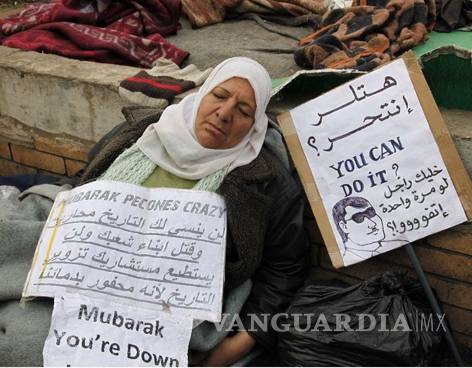 MUBARAK PECONES CRAZY
لن ينسى لك التاريخ محاربة
وقتل ابناء شعبك ولن
يستطيع مستشاريك تزوير
التاريخ لأنه محفور بدمائنا
Mubarak
You're Down
هتلر
إنتحر؟
YOU CAN
DO iT?
خليك راجل
لو مرة واحدة
إتفوووا!؟
VANGUARDIA MX